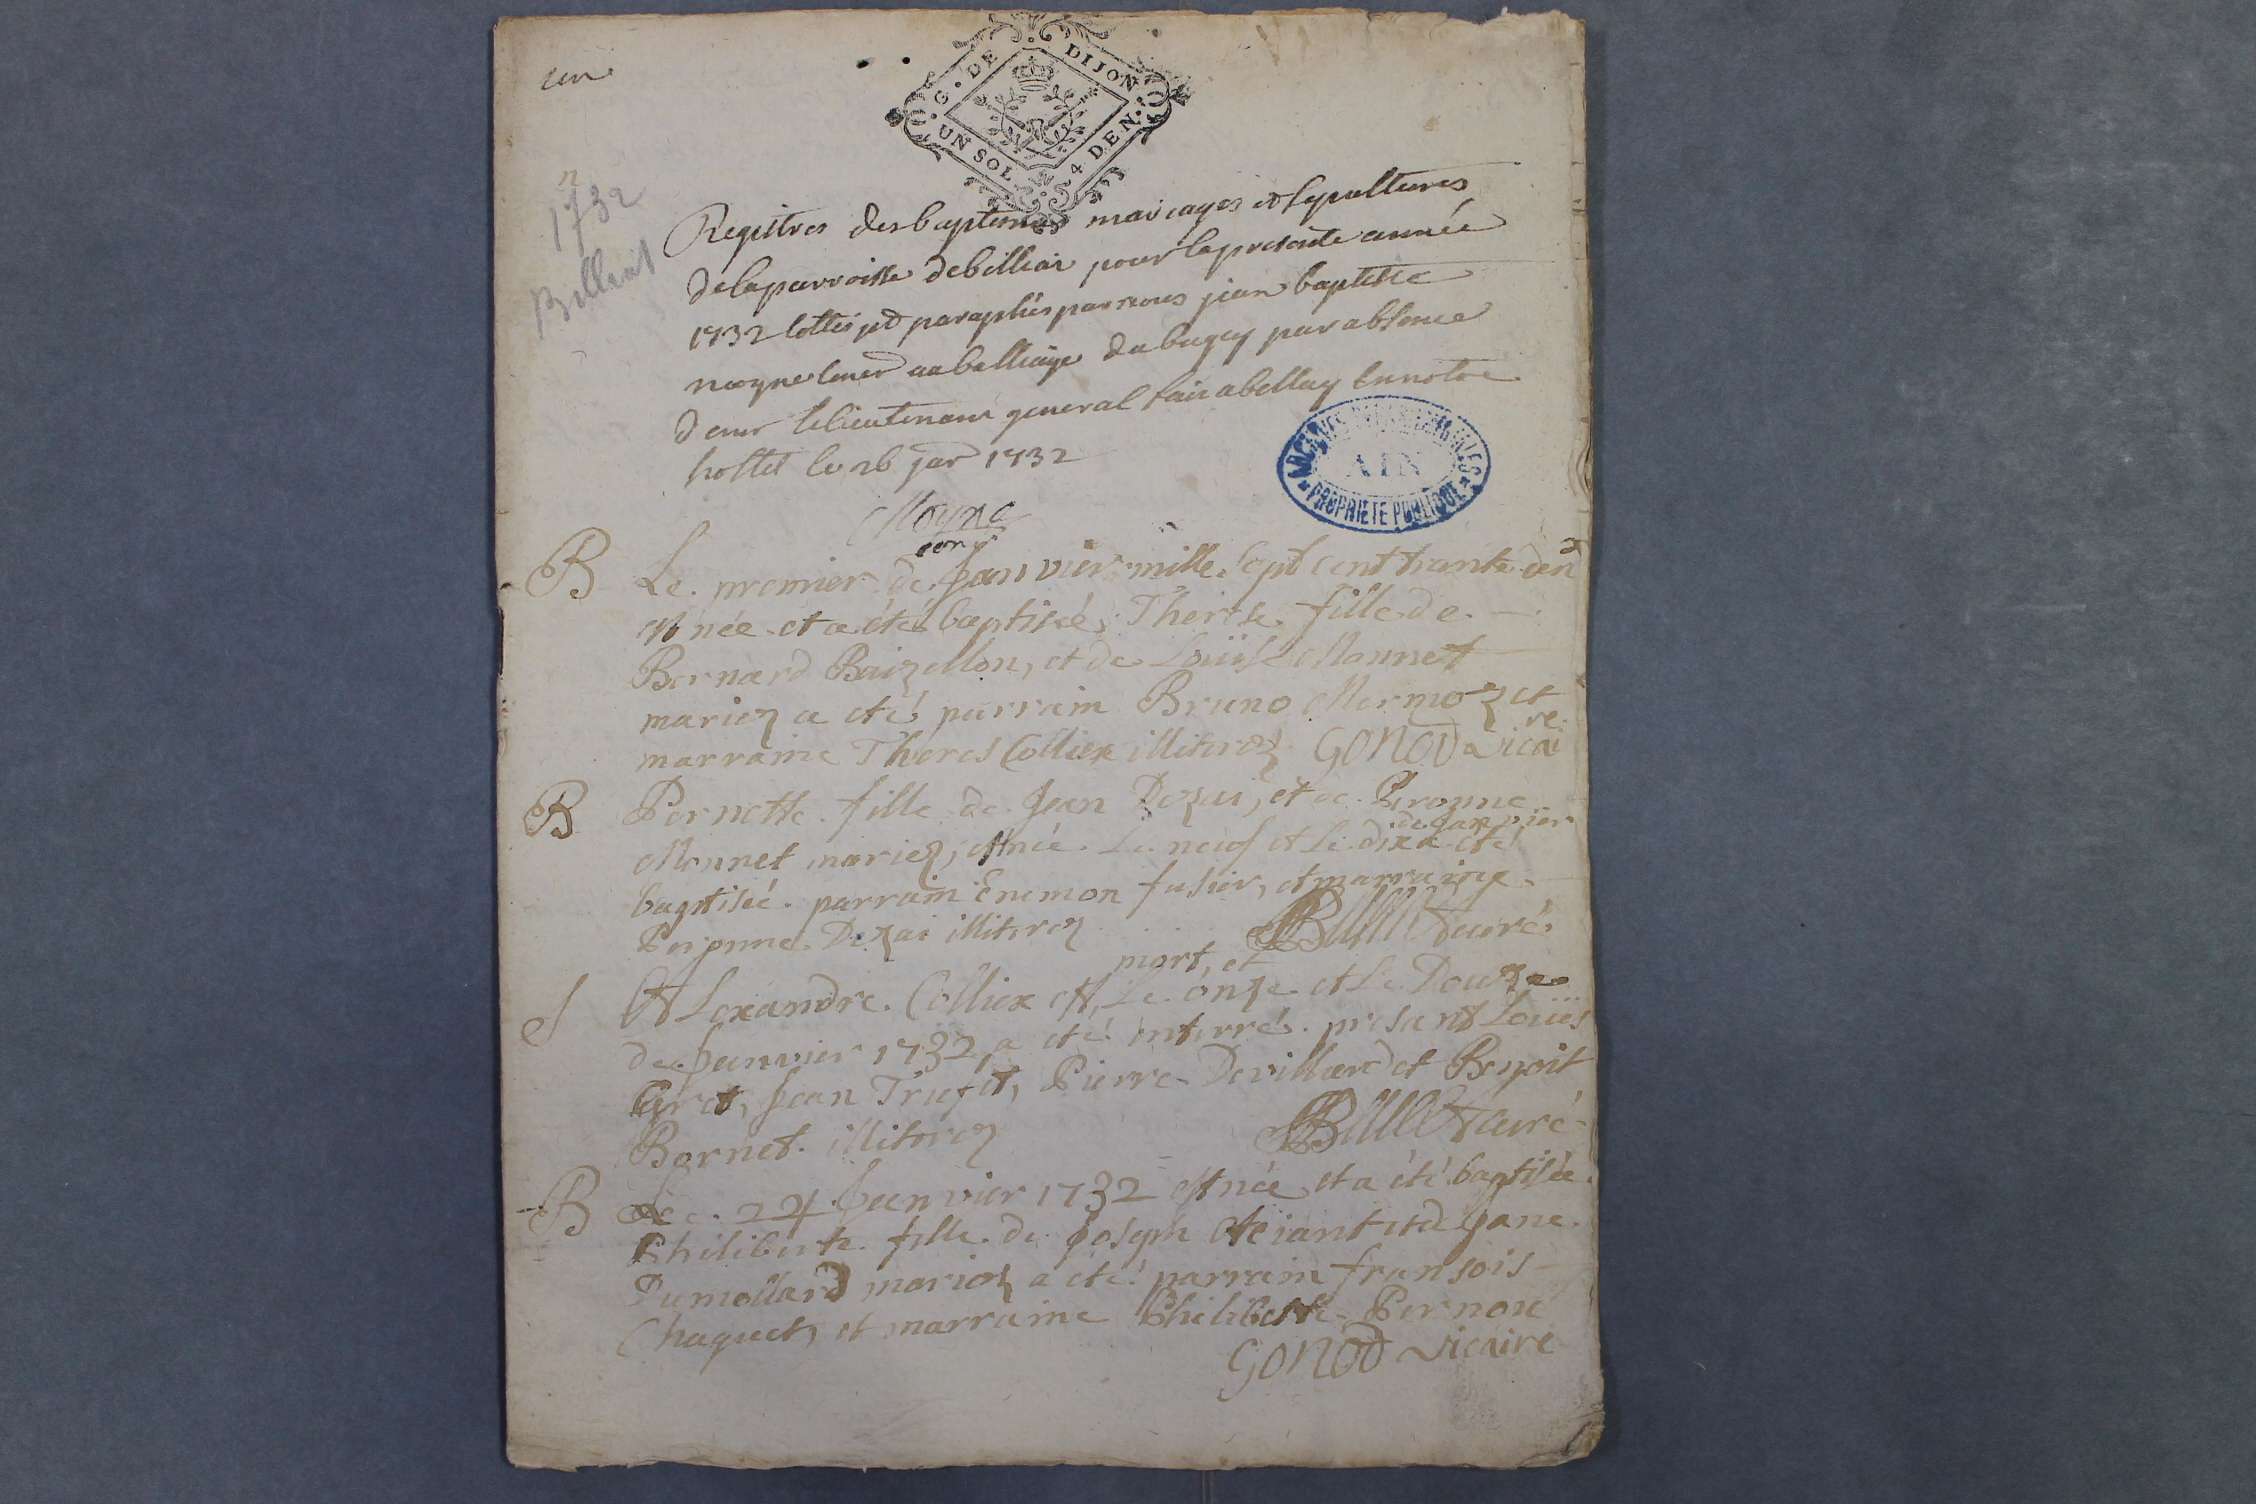 un
G. DE DIJON
UN SOL 4 DEN.
1732
Billiat
Registres des baptemes mariages et sepultures
de la parroisse de billiat pour la presente année
1732 cottés et paraphés par nous jean baptiste
moyne au balliage du bugey par absence
de mr le lieutenant general fait a belley en notre
hostel le 26 janr 1732
Moyne
ARCHIVES DEPARTEMENTALES
AIN
PROPRIETE PUBLIQUE
B Le premier de Janvier mille sept cent trante deu
est née et a été baptisée Therese fille de
Bernard Baizellon, et de Loüise Monnet
mariez a eté parrain Bruno Mermoz et
marraine Theres Colliex illiterez GONOD vicaire
B Pernette fille de Jean Dezai, et de Peronne
Monnet mariez, est née le neuf et le dix de janvier a eté
baptisée. parrain Enemon fusier, et marraine
Peronne Dezai illiterez Curé
S Alexandre Colliex est mort, et le onze et le Douze
de Janvier 1732 a eté enterré. presant Loüis
Jean Trufet, Pierre Devillard et Benoit
Bornet. illiterez Curé
B Le 24 Janvier 1732 est née et a été baptisée
Philiberte fille de Joseph et de Jane
Dumollard mariez a eté parrain fransois
Chaquet, et marraine Philiberte Pernou
GONOD vicaire